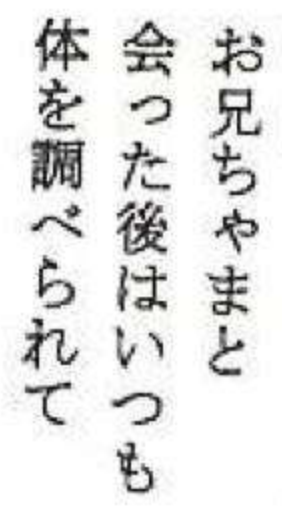 お兄ちゃまと
会った後はいつも
体を調べられて